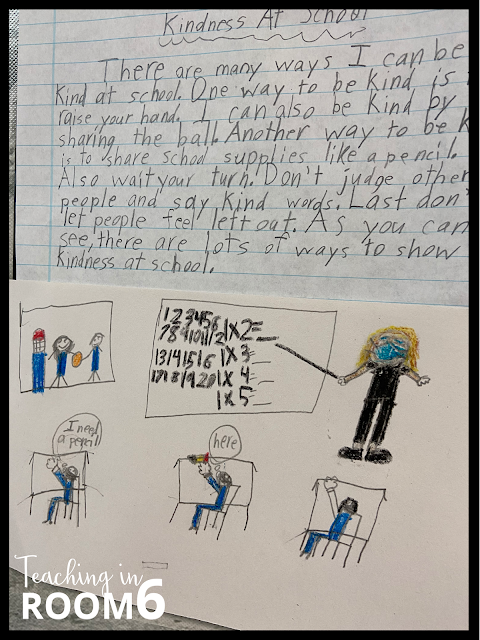 Kindness At School
There are many ways I can be
Kind at school. One way to be kind is
raise your hand. I can also be kind by
sharing the ball. Another way to be k
is to share school supplies like a pencil.
Also wait your turn. Don't judge other
people and say kind words. Last don'
let people feel left out. As you can
see, there are lots of ways to show
kindness at school.
1 2 3 4 5 6
1x2=
1x3=
13 14 15 16
1x4=
1x5=
I need
a pencil
here
Teaching in
ROOM 6